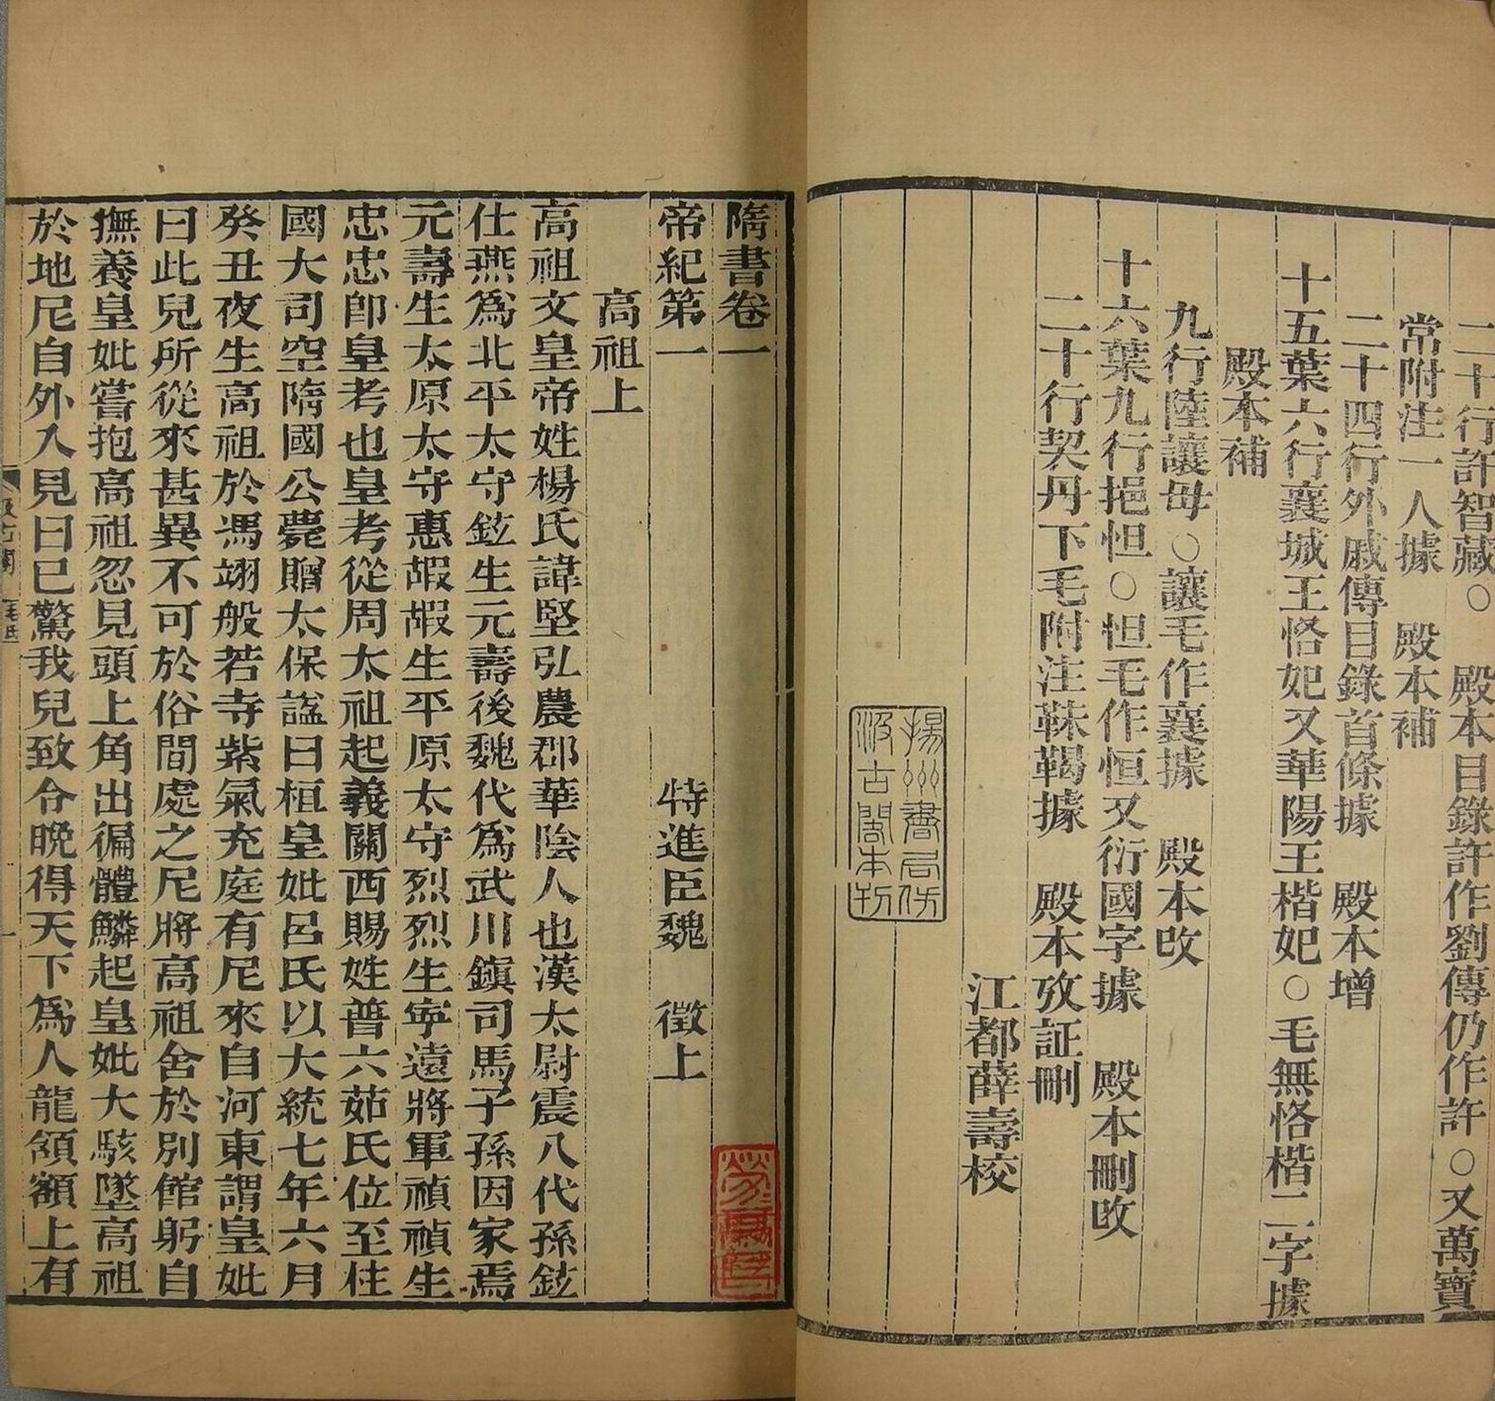 二十行許智藏○　殿本目錄許作劉傳仍作許○又萬寶
常附注一人據　殿本補
二十四行外戚傳目錄首條據　殿本增
十五葉六行襄城王恪妃又華陽王楷妃○毛無恪楷二字據
殿本補
九行陸讓母○讓毛作襄據　殿本攺
十六葉九行挹怛○怛毛作恒又衍國字據　殿本刪攺
二十行契丹下毛附注靺鞨據　殿本攷証刪
江都薛壽校
揚州書局仿
汲古閣本刊
隋書卷一
帝紀第一　特進臣魏　徵上
高祖上
高祖文皇帝姓楊氏諱堅弘農郡華陰人也漢太尉震八代孫鉉
仕燕爲北平太守鉉生元壽後魏代爲武川鎭司馬子孫因家焉
元壽生太原太守惠嘏嘏生平原太守烈烈生寧遠將軍禎禎生
忠忠卽皇考也皇考從周太祖起義關西賜姓普六茹氏位至柱
國大司空隋國公薨贈太保諡曰桓皇妣呂氏以大統七年六月
癸丑夜生高祖於馮翊般若寺紫氣充庭有尼來自河東謂皇妣
曰此兒所從來甚異不可於俗間處之尼將高祖舍於別館躬自
撫養皇妣嘗抱高祖忽見頭上角出徧體鱗起皇妣大駭墜高祖
於地尼自外入見曰已驚我兒致令晚得天下爲人龍頷額上有
汲古閣
毛氏
一